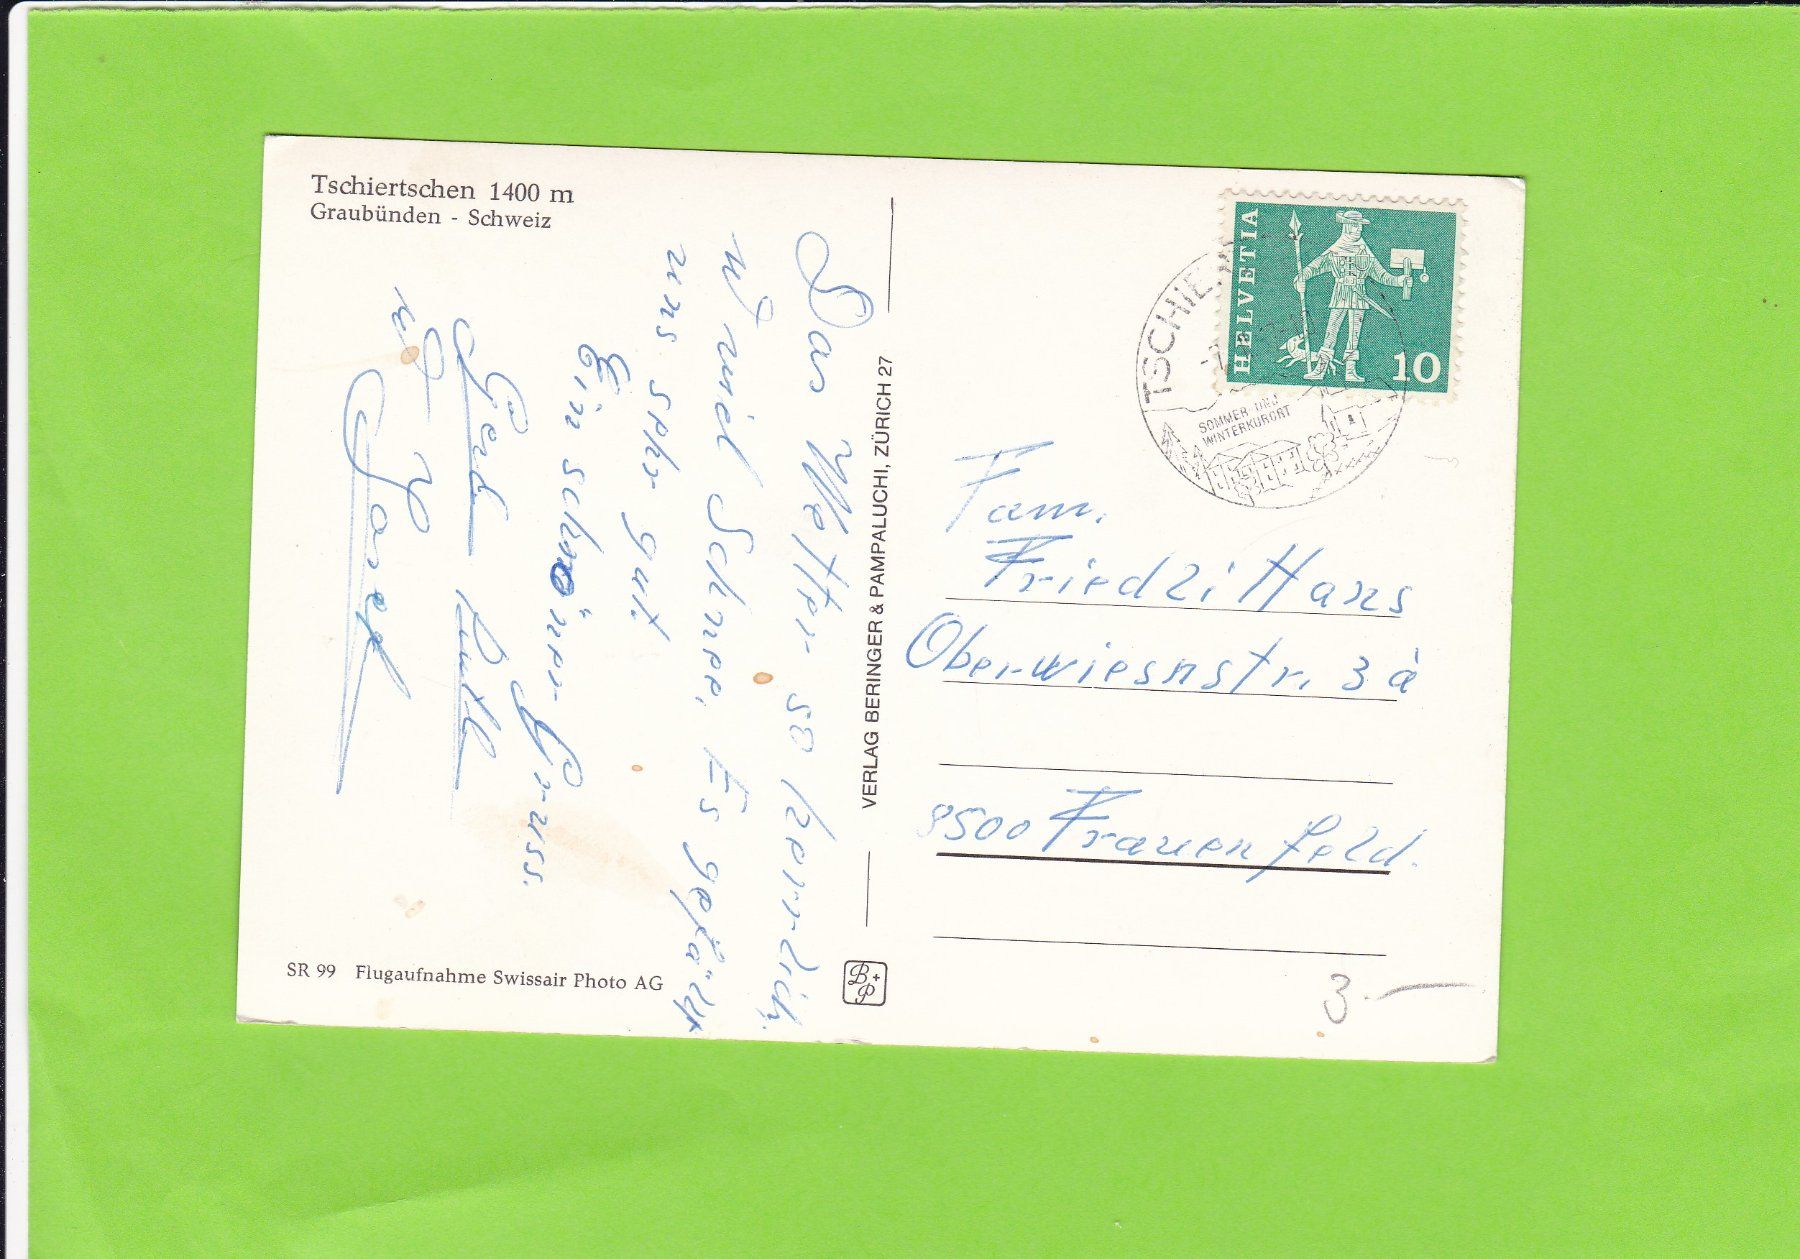 Tschiertschen 1400 m
Graubünden - Schweiz
Das Wetter so herrlich,
u viel Schnee, Es gefällt
uns sehr gut
Ein schöner Gruss.
Ruth
u
Josef
SR 99 Flugaufnahme Swissair Photo AG
VERLAG BERINGER & PAMPALUCHI, ZÜRICH 27
B+P
HELVETIA
10
TSCHIE
SOMMER UND
WINTERKURORT
Fam.
Friedli Hans
Oberwiesnstr. 3 a
8500 Frauenfeld.
3.-